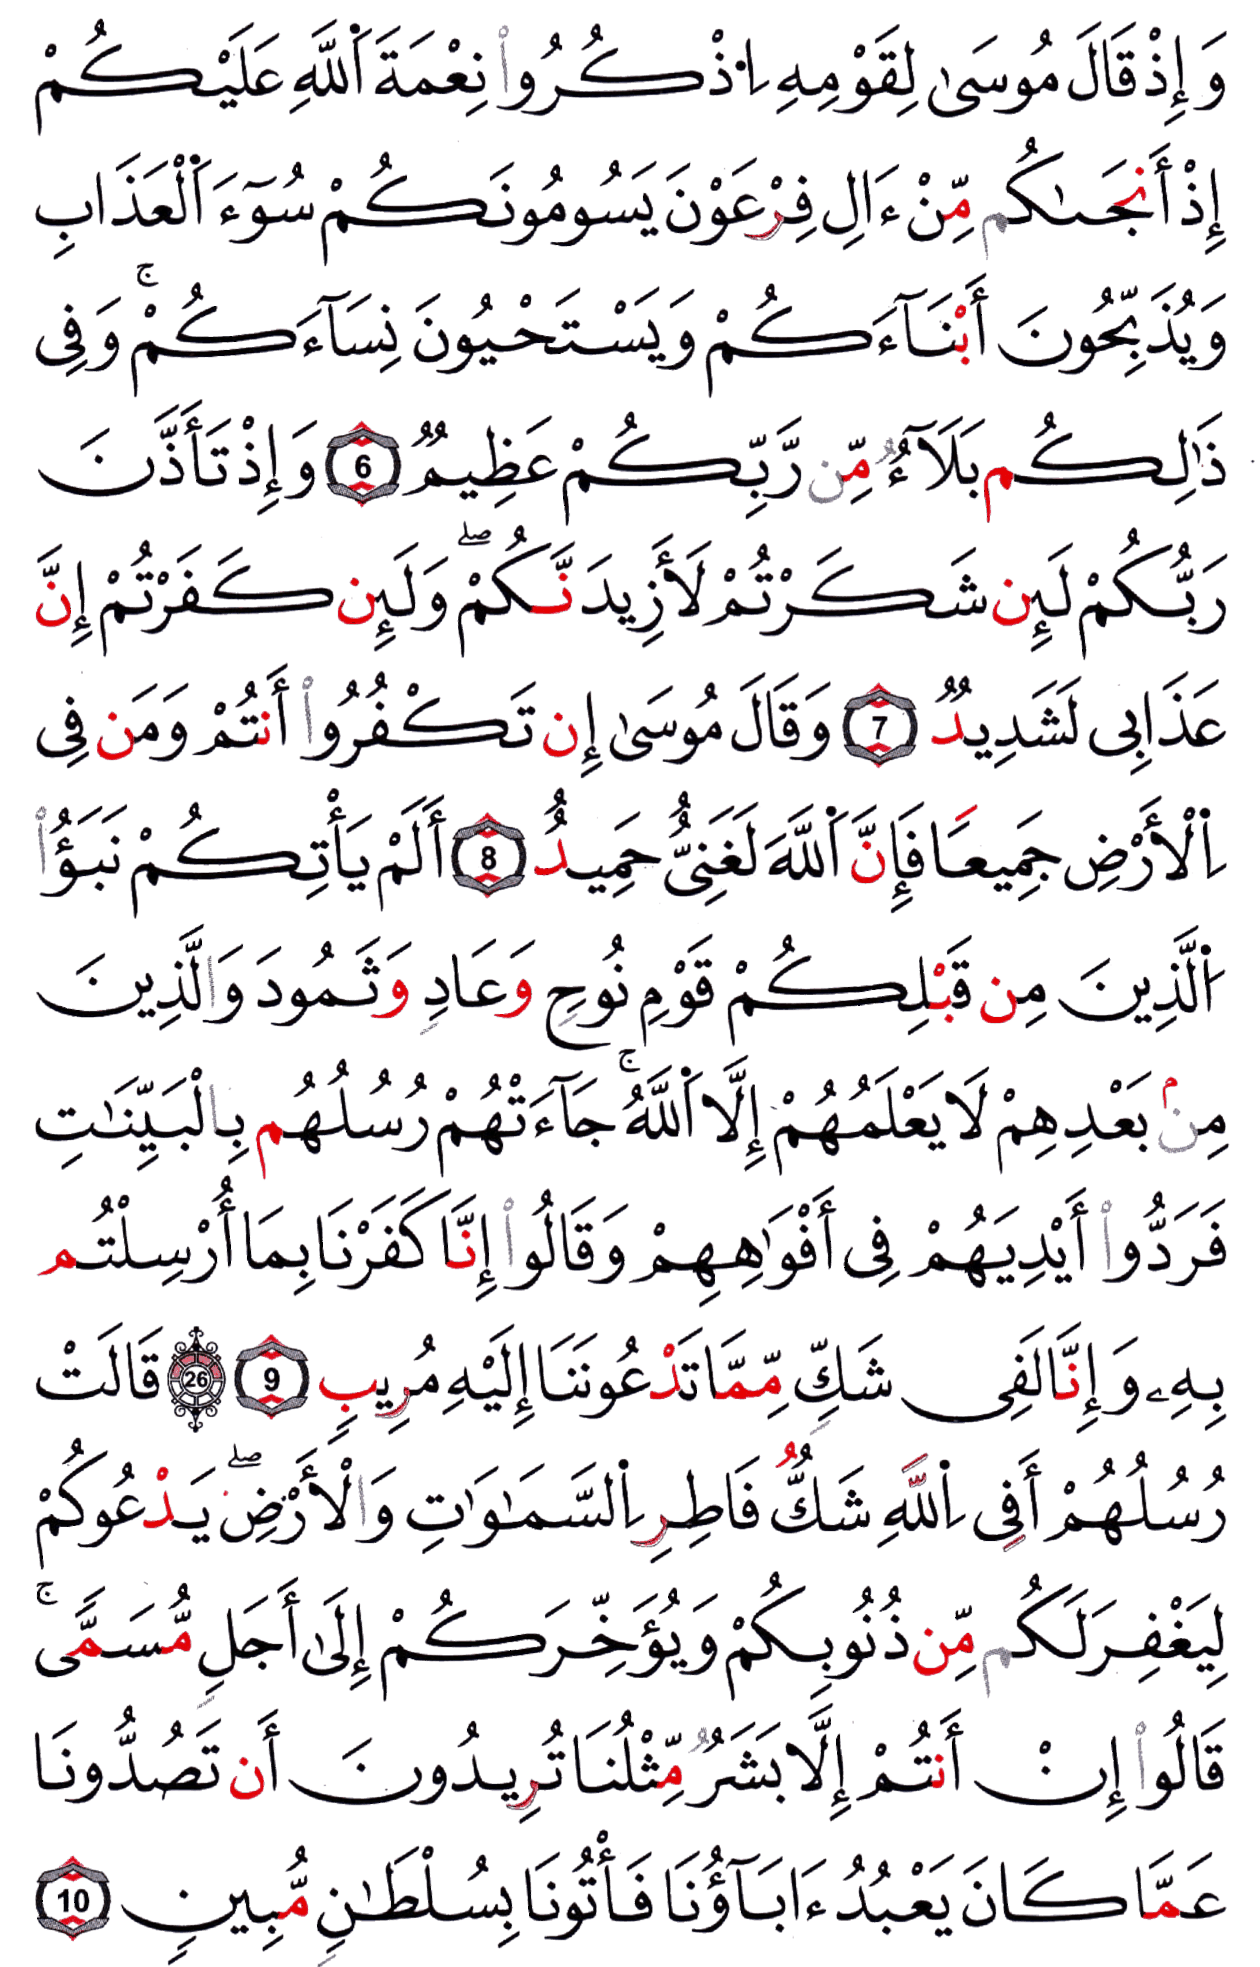 وَإِذْ قَالَ مُوسَىٰ لِقَوْمِهِ ٱذْكُرُوا۟ نِعْمَةَ ٱللَّهِ عَلَيْكُمْ
إِذْ أَنجَىٰكُم مِّنْ ءَالِ فِرْعَوْنَ يَسُومُونَكُمْ سُوٓءَ ٱلْعَذَابِ
وَيُذَبِّحُونَ أَبْنَآءَكُمْ وَيَسْتَحْيُونَ نِسَآءَكُمْ ۚ وَفِى
ذَٰلِكُم بَلَآءٌ مِّن رَّبِّكُمْ عَظِيمٌ 6 وَإِذْ تَأَذَّنَ
رَبُّكُمْ لَئِن شَكَرْتُمْ لَأَزِيدَنَّكُمْ ۖ وَلَئِن كَفَرْتُمْ إِنَّ
عَذَابِى لَشَدِيدٌ 7 وَقَالَ مُوسَىٰ إِن تَكْفُرُوا۟ أَنتُمْ وَمَن فِى
ٱلْأَرْضِ جَمِيعًا فَإِنَّ ٱللَّهَ لَغَنِىٌّ حَمِيدٌ 8 أَلَمْ يَأْتِكُمْ نَبَؤُا۟
ٱلَّذِينَ مِن قَبْلِكُمْ قَوْمِ نُوحٍ وَعَادٍ وَثَمُودَ وَالَّذِينَ
مِنۢ بَعْدِهِمْ لَا يَعْلَمُهُمْ إِلَّا ٱللَّهُ ۚ جَآءَتْهُمْ رُسُلُهُم بِالْبَيِّنَٰتِ
فَرَدُّوا۟ أَيْدِيَهُمْ فِى أَفْوَٰهِهِمْ وَقَالُوا۟ إِنَّا كَفَرْنَا بِمَا أُرْسِلْتُم
بِهِۦ وَإِنَّا لَفِى شَكٍّ مِّمَّا تَدْعُونَنَا إِلَيْهِ مُرِيبٍ 9 26 قَالَتْ
رُسُلُهُمْ أَفِى ٱللَّهِ شَكٌّ فَاطِرِ ٱلسَّمَٰوَٰتِ وَالْأَرْضِ ۖ يَدْعُوكُمْ
لِيَغْفِرَ لَكُم مِّن ذُنُوبِكُمْ وَيُؤَخِّرَكُمْ إِلَىٰ أَجَلٍ مُّسَمًّى ۚ
قَالُوا۟ إِنْ أَنتُمْ إِلَّا بَشَرٌ مِّثْلُنَا تُرِيدُونَ أَن تَصُدُّونَا
عَمَّا كَانَ يَعْبُدُ ءَابَآؤُنَا فَأْتُونَا بِسُلْطَٰنٍ مُّبِينٍ 10